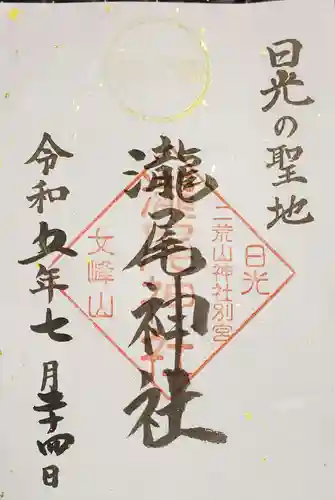 日光の聖地
瀧尾神社
日光
二荒山神社別宮
瀧尾神社
女峰山
令和五年七月二十四日